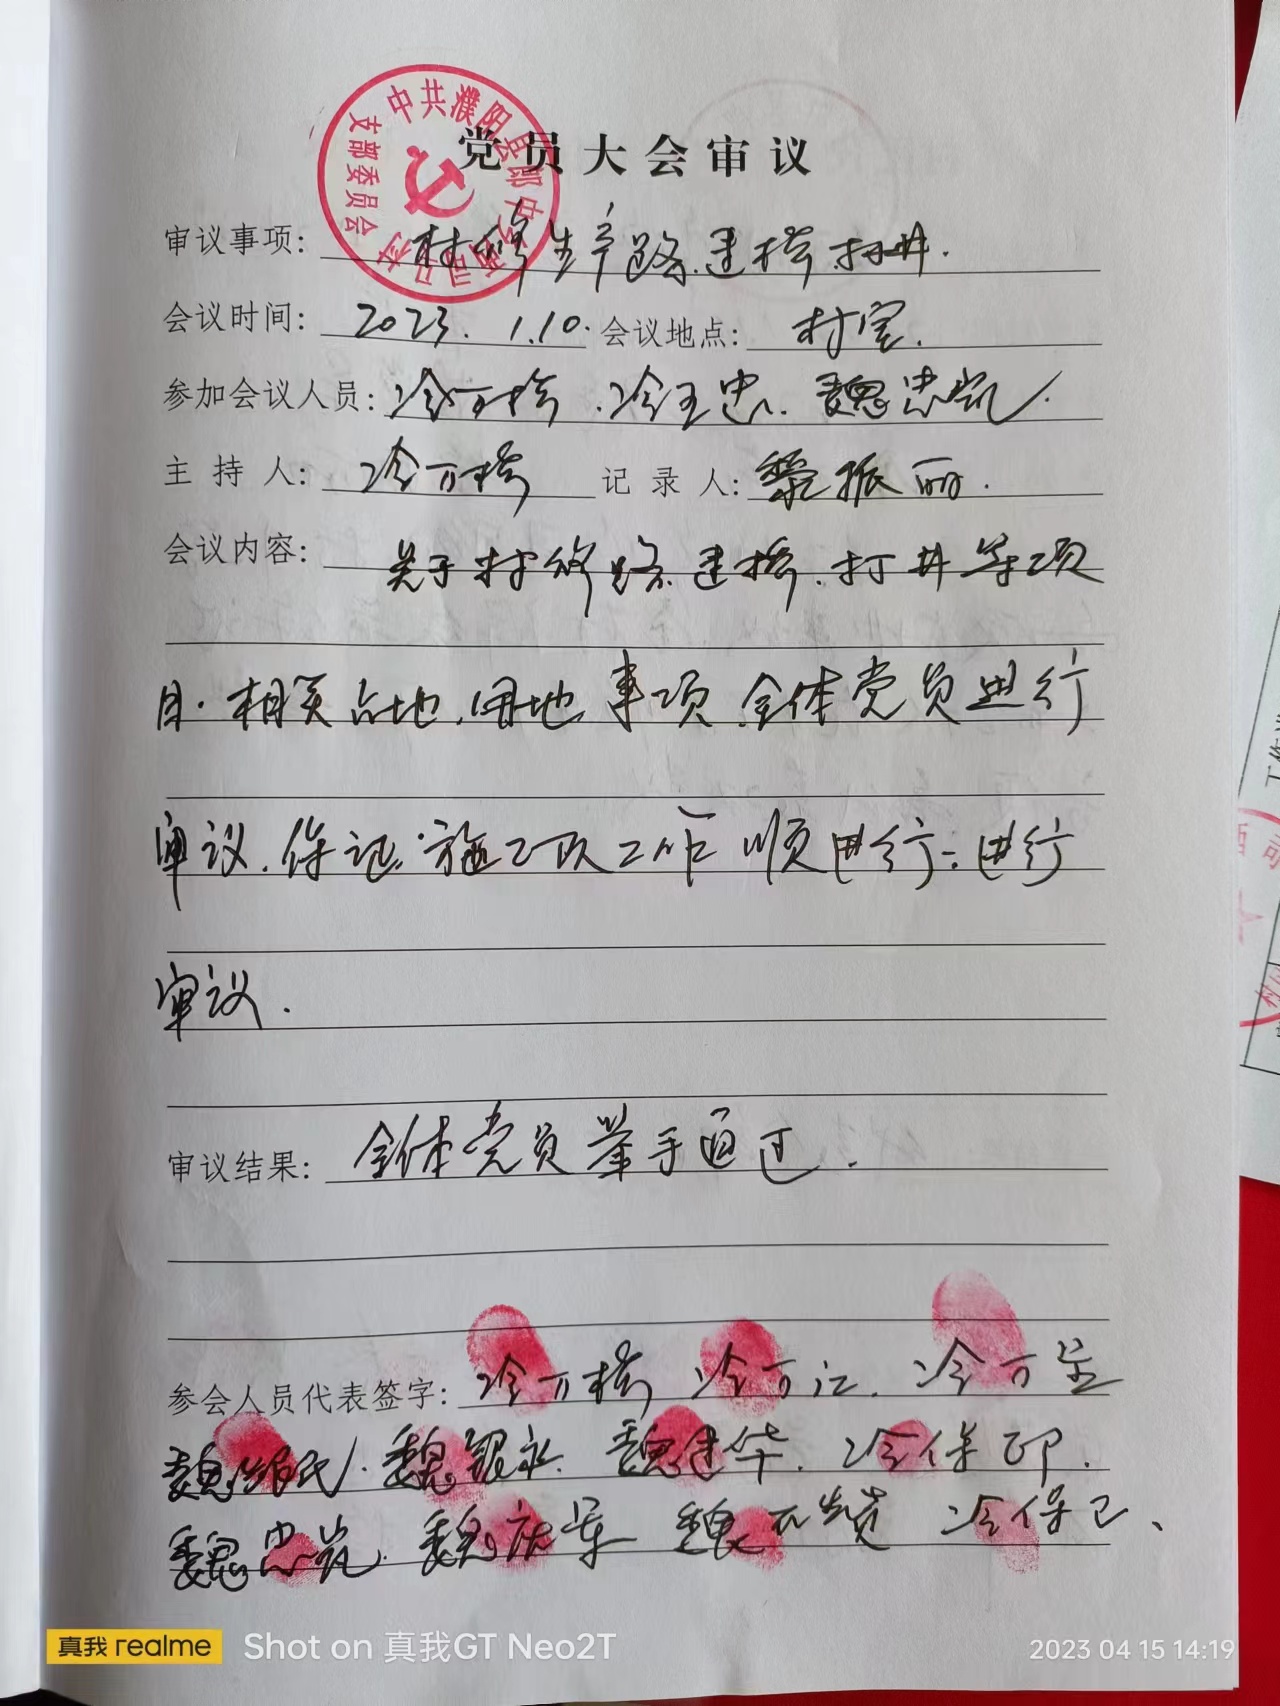 中共濮阳县郎中乡西司马村
支部委员会
党员大会审议
审议事项: 村修生产路.建桥.打井.
会议时间: 2023.1.10. 会议地点: 村室.
参加会议人员: 冷万桥.冷玉忠.魏忠凯.
主持人: 冷万桥 记录人: 振丽.
会议内容: 关于村修路.建桥.打井等项
目.相关占地.用地事项.全体党员进行
审议.保证.施工队工作顺进行.进行
审议.
审议结果: 全体党员举手通过.
参会人员代表签字: 冷万桥 冷万江. 冷万
魏 民. 魏银永. 魏建华. 冷保印.
魏忠凯. 魏庆军 魏 冷保卫、
西司
村
真我 realme Shot on 真我GT Neo2T 2023 04 15 14:19